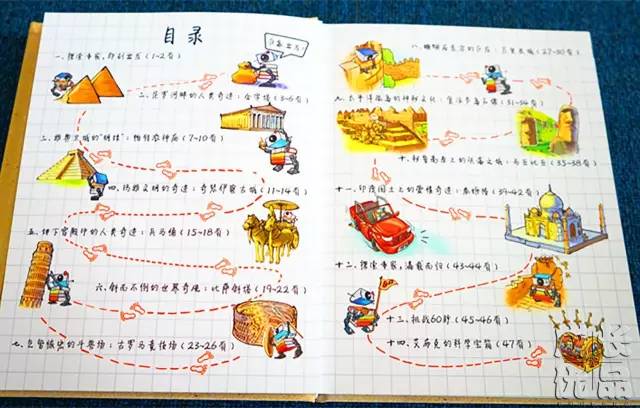 目录
准备出发!
一、探索专家,即刻出发(1-2页)
二、尼罗河畔的人类奇迹:金字塔(3-6页)
三、雅典卫城的"明珠":帕特农神庙(7-10页)
四、玛雅文明的奇迹:奇琴伊察古城(11-14页)
五、地下宫殿中的人类奇迹:兵马俑(15-18页)
六、斜而不倒的世界奇观:比萨斜塔(19-22页)
七、的斗兽场:古罗马竞技场(23-26页)
八、蜿蜒在东方的巨龙:万里长城(27-30页)
九、太平洋孤岛的神秘文化:复活节岛石像(31-34页)
十、秘鲁高原上的失落之城:马丘比丘(35-38页)
十一、印度国土上的爱情奇迹:泰姬陵(39-42页)
十二、探索专家,满载而归(43-44页)
十三、挑战60秒(45-46页)
十四、艾布克的科学宝箱(47页)
优品